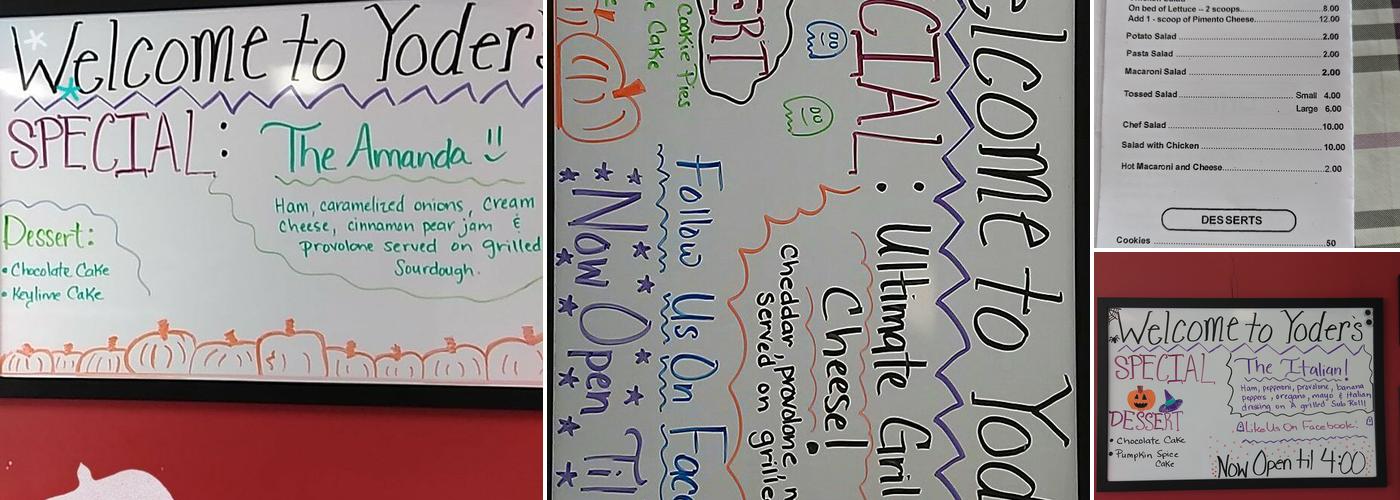 Welcome to Yoder's
SPECIAL:
The Amanda
Ham, caramelized onions, cream
cheese, cinnamon pear jam &
provolone served on grilled
Sourdough.
Dessert:
• Chocolate Cake
• Keylime Cake
elcome to Yod
CIAL: Ultimate Gril
Cheese!
Cheddar, provolone,
Served on grille
ERT
Cookie Pies
e Cake
Follow Us On Fac
Now Open Til
On bed of Lettuce -- 2 scoops 8.00
Add 1 - scoop of Pimento Cheese 12.00
Potato Salad 2.00
Pasta Salad 2.00
Macaroni Salad 2.00
Tossed Salad Small 4.00
Large 6.00
Chef Salad 10.00
Salad with Chicken 10.00
Hot Macaroni and Cheese 2.00
DESSERTS
Cookies 50
Welcome to Yoder's
SPECIAL
The Italian!
Ham, pepperoni, provolone, banana
peppers, oregano, mayo & Italian
dressing on A grilled Sub Roll!
DESSERT
• Chocolate Cake
• Pumpkin Spice
Cake
Like Us On Facebook!
Now Open til 4:00